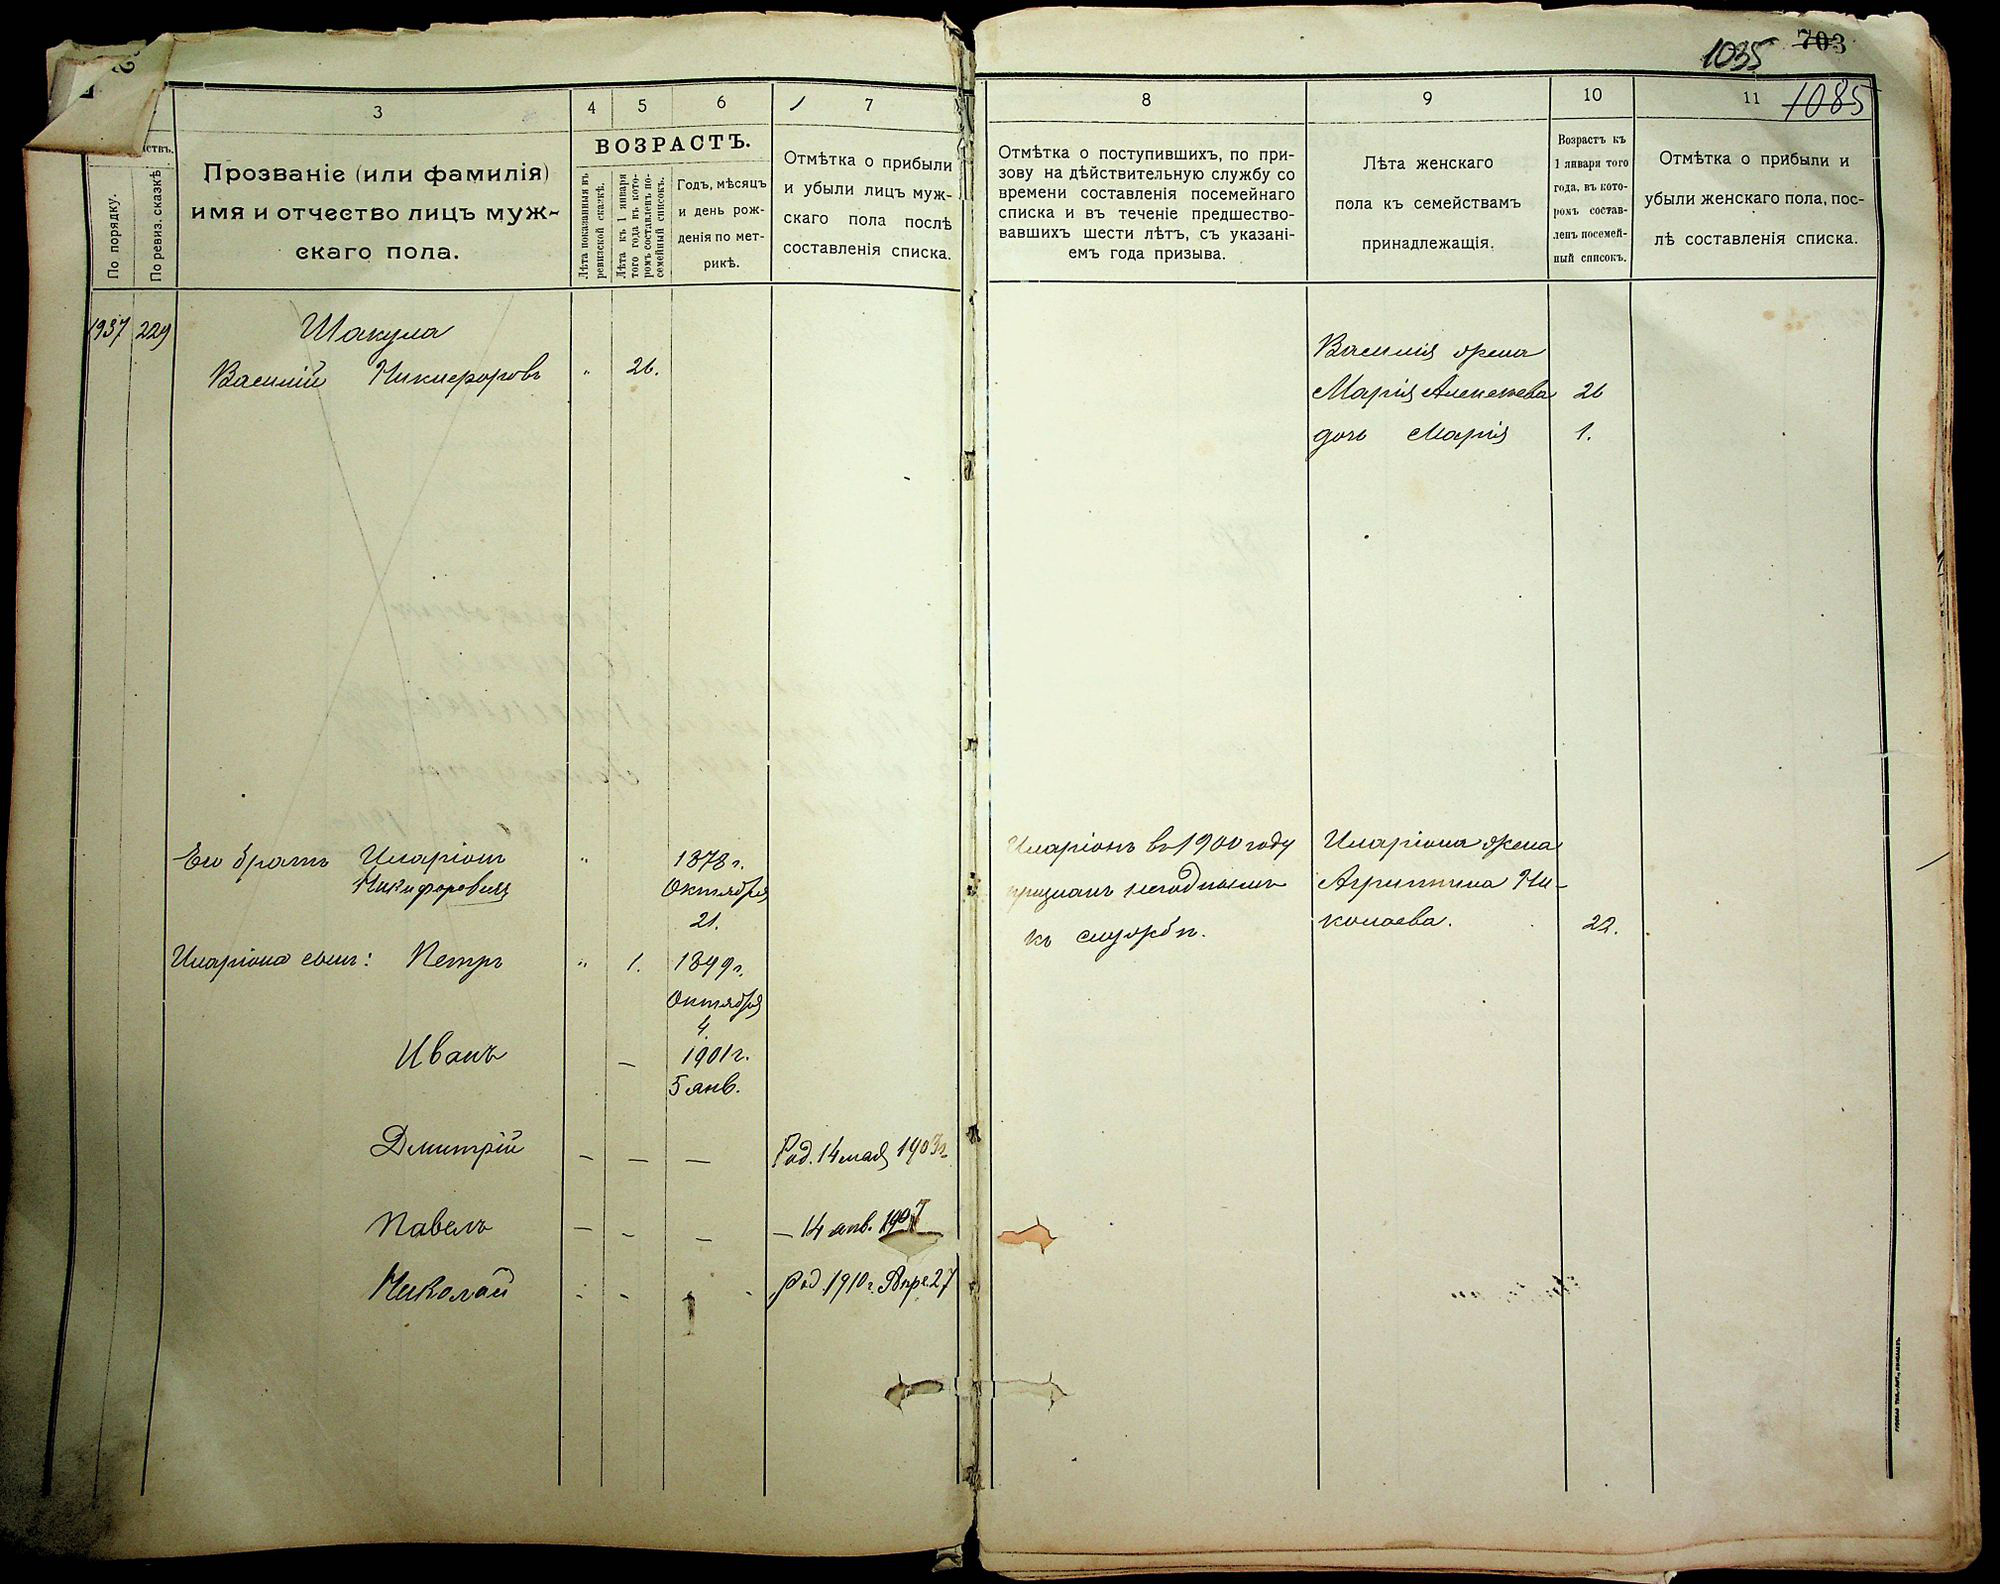 1035 703
1085
3
4
5
6
7
8
9
10
11
По порядку.
По ревиз. сказкѣ
Прозваніе (или фамилія)
имя и отчество лицъ муж-
скаго пола.
ВОЗРАСТЪ.
Лѣта показанныя въ
ревизской сказкѣ.
Лѣта къ 1 января
того года въ кото-
ромъ составленъ по-
семейный списокъ.
Годъ, мѣсяцъ
и день рож-
денія по мет-
рикѣ.
Отмѣтка о прибыли
и убыли лицъ муж-
скаго пола послѣ
составленія списка.
Отмѣтка о поступившихъ, по при-
зову на дѣйствительную службу со
времени составленія посемейнаго
списка и въ теченіе предшество-
вавшихъ шести лѣтъ, съ указані-
емъ года призыва.
Лѣта женскаго
пола къ семействамъ
принадлежащія.
Возрастъ къ
1 января того
года, въ кото-
ромъ состав-
ленъ посемей-
ный списокъ.
Отмѣтка о прибыли и
убыли женскаго пола, пос-
лѣ составленія списка.
1937 229 Шакула
Василій Никифоровъ " 26.
Василія жена
Марія Алексѣева 26
дочь Марія 1.
Его братъ Иларіонъ " 1878 г.
Никифоровичъ Октября
21.
Иларіонъ въ 1900 году
признанъ негоднымъ
къ службѣ.
Иларіона жена
Агрипина Ни-
колаева. 22.
Иларіона сынъ: Петръ " 1. 1899 г.
Октября
4
Иванъ — 1901 г.
5 янв.
Дмитрій — — — Род. 14 мая 1903 г.
Павелъ — — — — 14 янв. 1907
Николай Род. 1910 г. Апре. 27